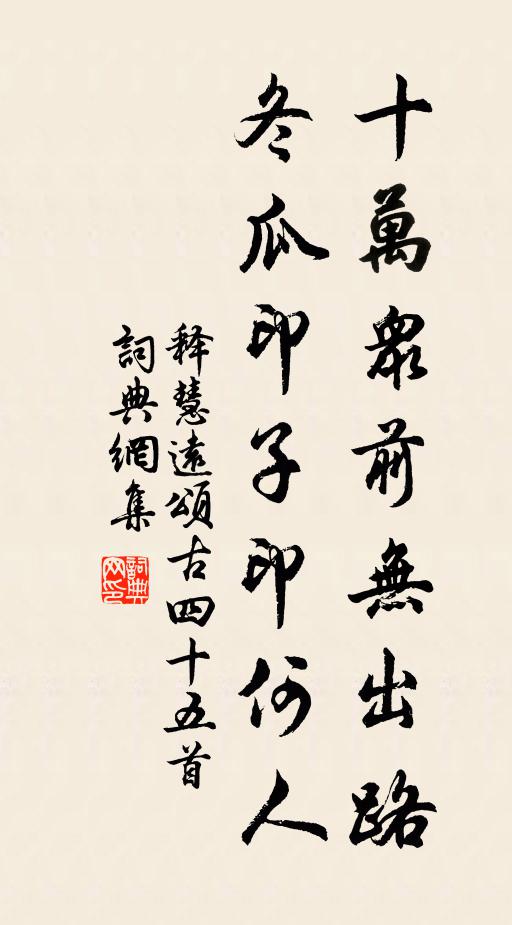 十萬眾前無出路
冬瓜印子印何人
释慧遠頌古四十五首
詞典網集
詞典网印